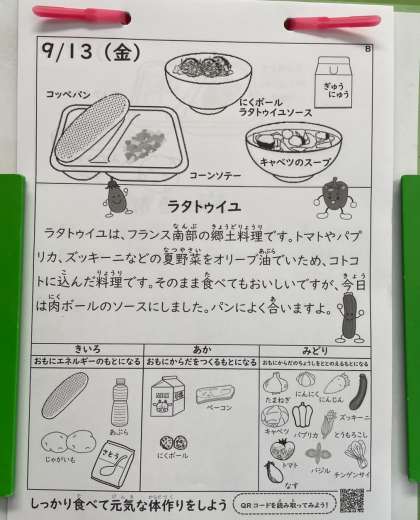 9/13（金）
B
コッペパン
にくボール
ラタトゥイユソース
ぎゅう
にゅう
キャベツのスープ
コーンソテー
ラタトゥイユ
ラタトゥイユは、フランス南部の郷土料理です。トマトやパプ
リカ、ズッキーニなどの夏野菜をオリーブ油でいため、コトコ
トに込んだ料理です。そのまま食べてもおいしいですが、今日
は肉ボールのソースにしました。パンによく合いますよ。
きいろ
あか
みどり
おもにエネルギーのもとになる
おもにからだをつくるもとになる
おもにからだのちょうしをととのえるもとになる
あぶら
じゃがいも
さとう
ベーコン
にくボール
たまねぎ
にんにく
にんじん
ズッキーニ
キャベツ
パプリカ
とうもろこし
トマト
バジル
チンゲンサイ
なす
しっかり食べて元気な体作りをしよう
QRコードを読み取ってみよう！